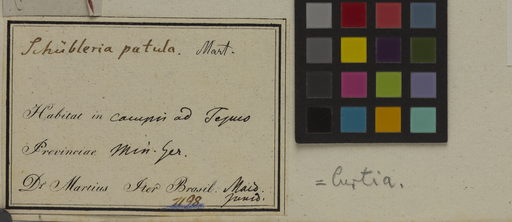 Schübleria patula. Mart.
Habitat in campis ad Tejuco
Provinciae Min. Ger.
Dr Martius Iter Brasil. Maio.
Junio.
= Curtia.